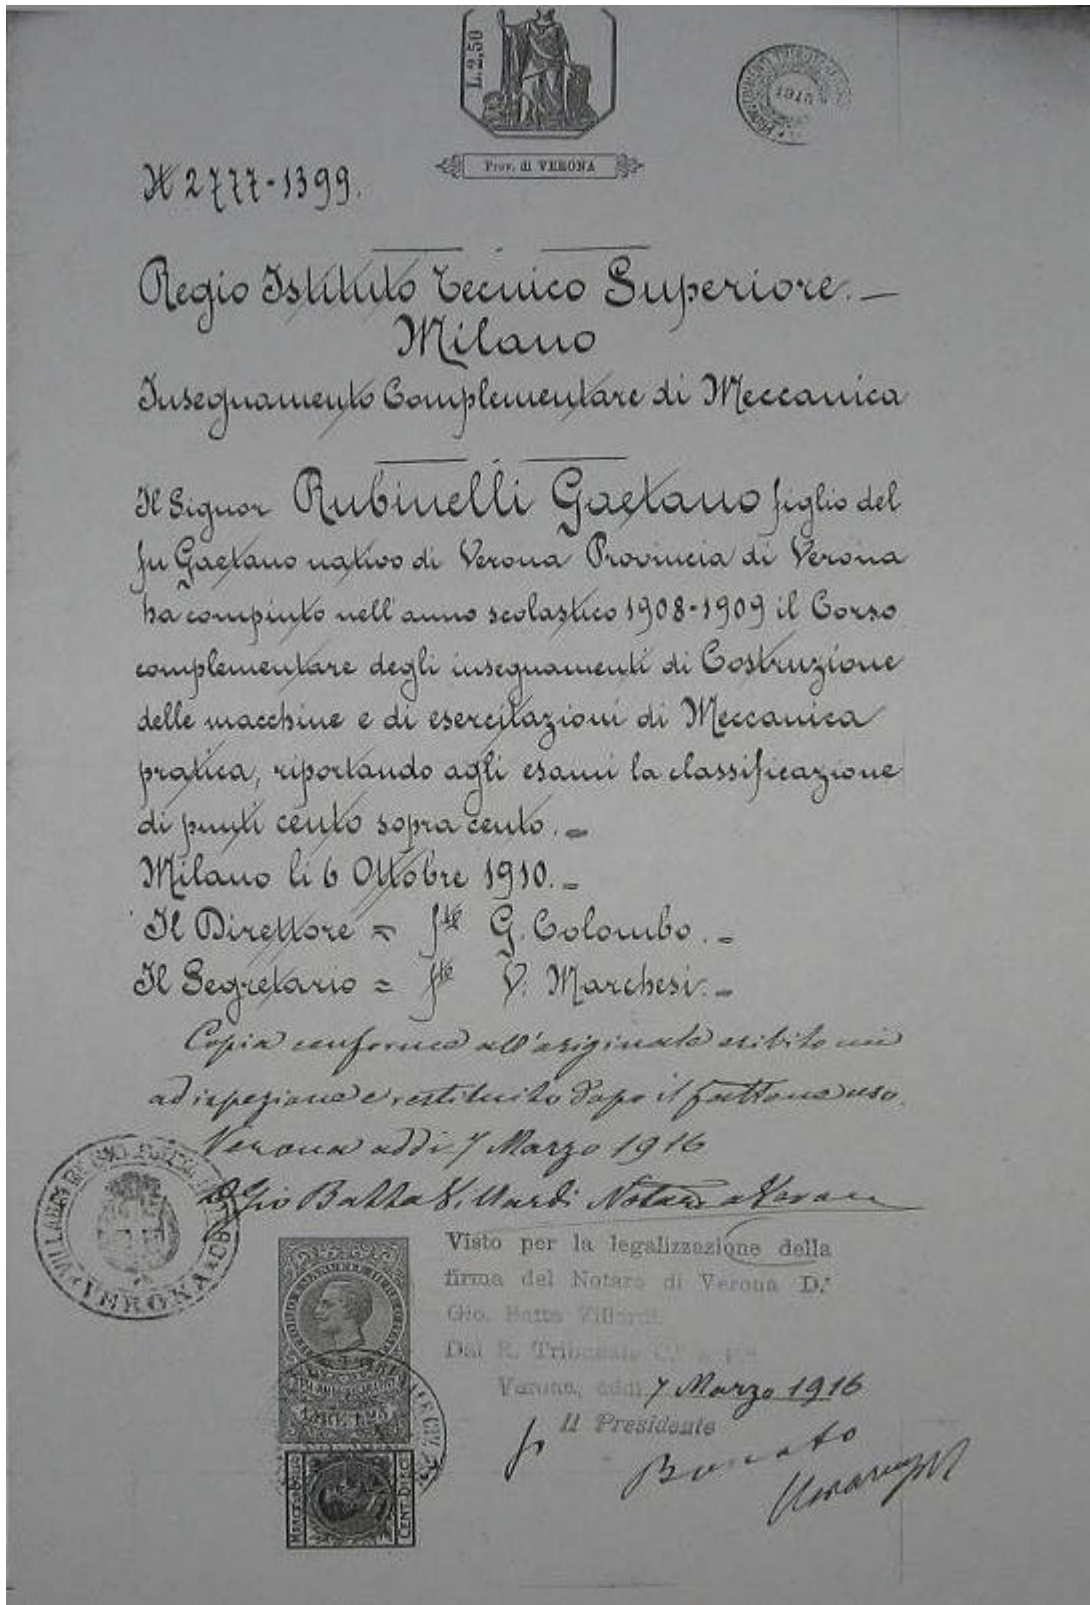 L. 2,50
Prov. di VERONA
N 2777-1399.
Regio Istituto Tecnico Superiore. —
Milano
Insegnamento Complementare di Meccanica
Il Signor Rubinelli Gaetano figlio del
fu Gaetano nativo di Verona Provincia di Verona
ha compiuto nell'anno scolastico 1908-1909 il Corso
complementare degli insegnamenti di Costruzione
delle macchine e di esercitazioni di Meccanica
pratica, riportando agli esami la classificazione
di punti cento sopra cento. =
Milano li 6 Ottobre 1910. =
Il Direttore = fto G. Colombo. =
Il Segretario = fto V. Marchesi. =
Copia conforme all'originale esibito mi
ad ispezione e restituito dopo il fattone uso.
Verona addi 7 Marzo 1916
Gio Batta Notaro a Verona
VERONA
Visto per la legalizzazione della
firma del Notaro di Verona D.r
Gio. Batta Villardi
Dal R. Tribunale
Verona, addi 7 Marzo 1916
Il Presidente
LIRE 1.25
MARCA DA BOLLO
CENT. DIECI